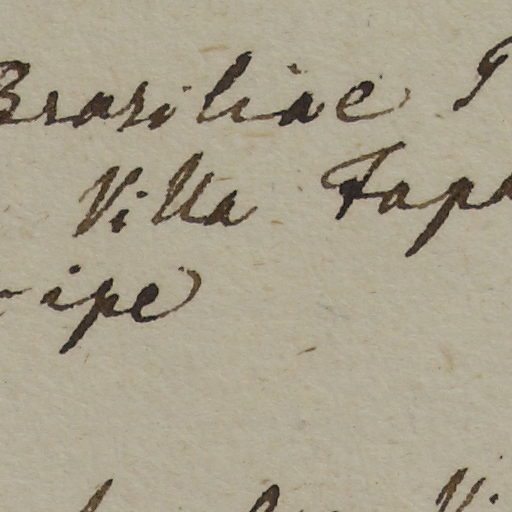 Brasiliae
Villa Tapa
ipe